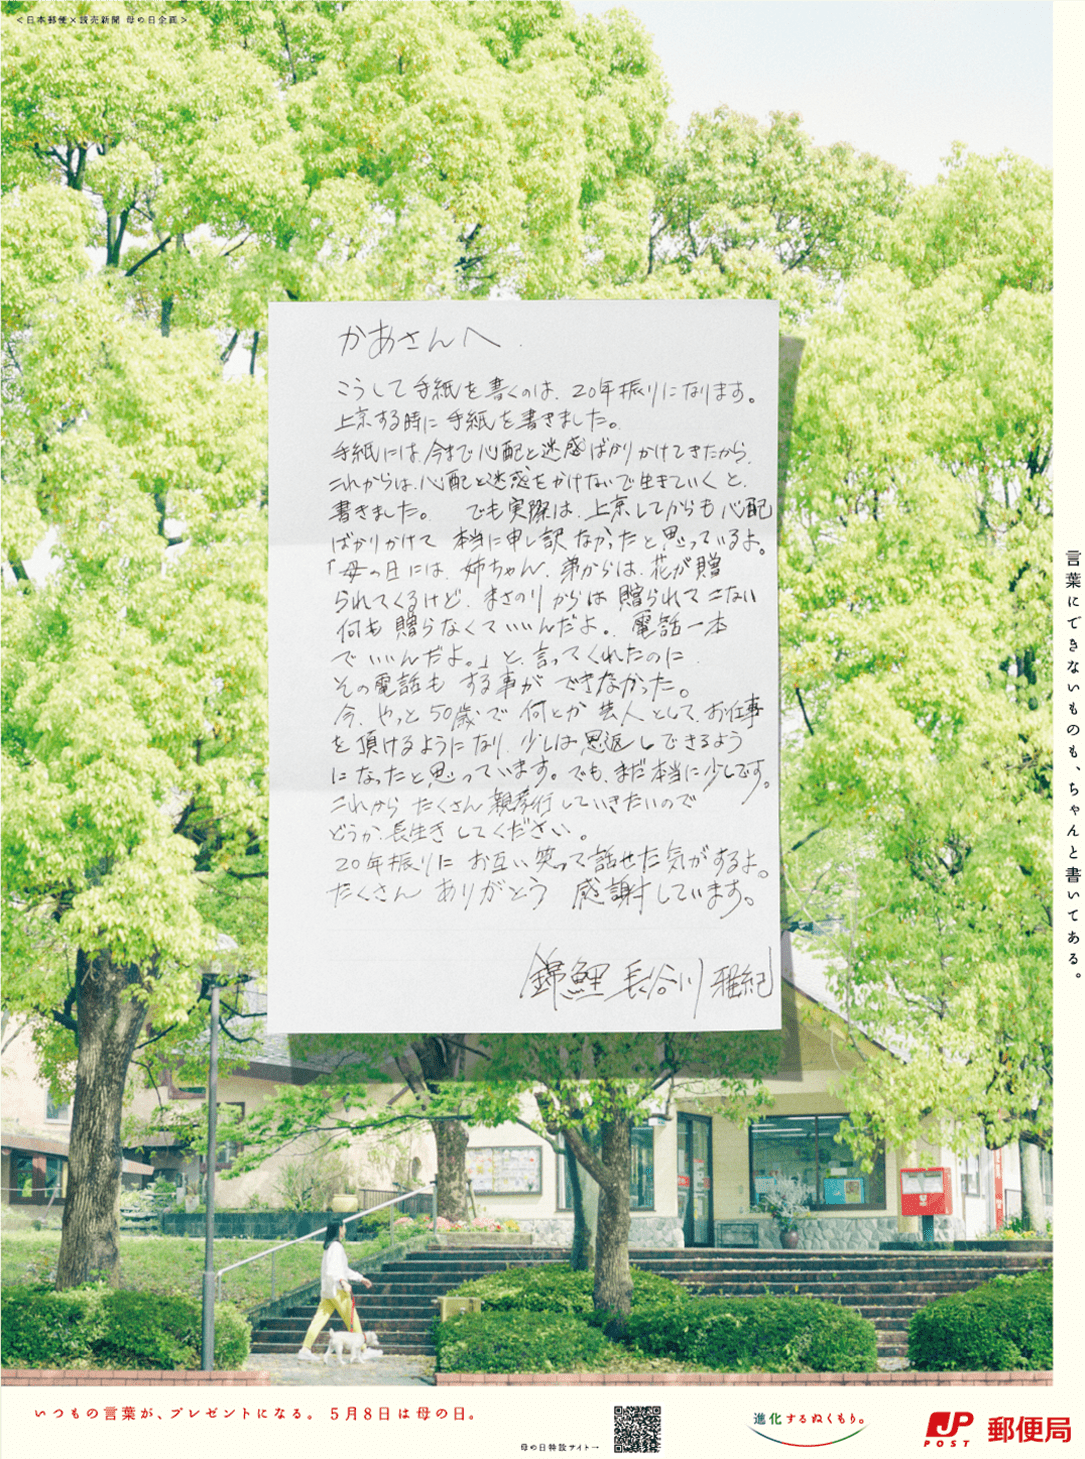 <日本郵便×読売新聞 母の日企画>
かあさんへ.
こうして手紙を書くのは、20年振りになります。
上京する時に手紙を書きました。
手紙には、今まで心配と迷惑ばかりかけてきたから、
これからは、心配と迷惑をかけないで生きていくと、
書きました。 でも実際は、上京してからも心配
ばかりかけて 本当に申し訳なかったと思っているよ。
「母の日には、姉ちゃん、弟からは、花が贈
られてくるけど、まさのりからは贈られてこない
何も贈らなくていいんだよ。電話一本
でいいんだよ。」と、言ってくれたのに、
その電話も する事ができなかった。
今、やっと50歳で何とか芸人として、お仕事
を頂けるようになり、少しは恩返しできるよう
になったと思っています。でも、まだ本当に少しです。
これから たくさん親孝行していきたいので
どうか、長生きしてください。
20年振りに お互い笑って話せた気がするよ。
たくさん ありがとう 感謝しています。
錦鯉 長谷川 雅紀
言葉にできないものも、ちゃんと書いてある。
いつもの言葉が、プレゼントになる。 5月8日は母の日。
母の日特設サイト→
進化するぬくもり。
JP POST 郵便局